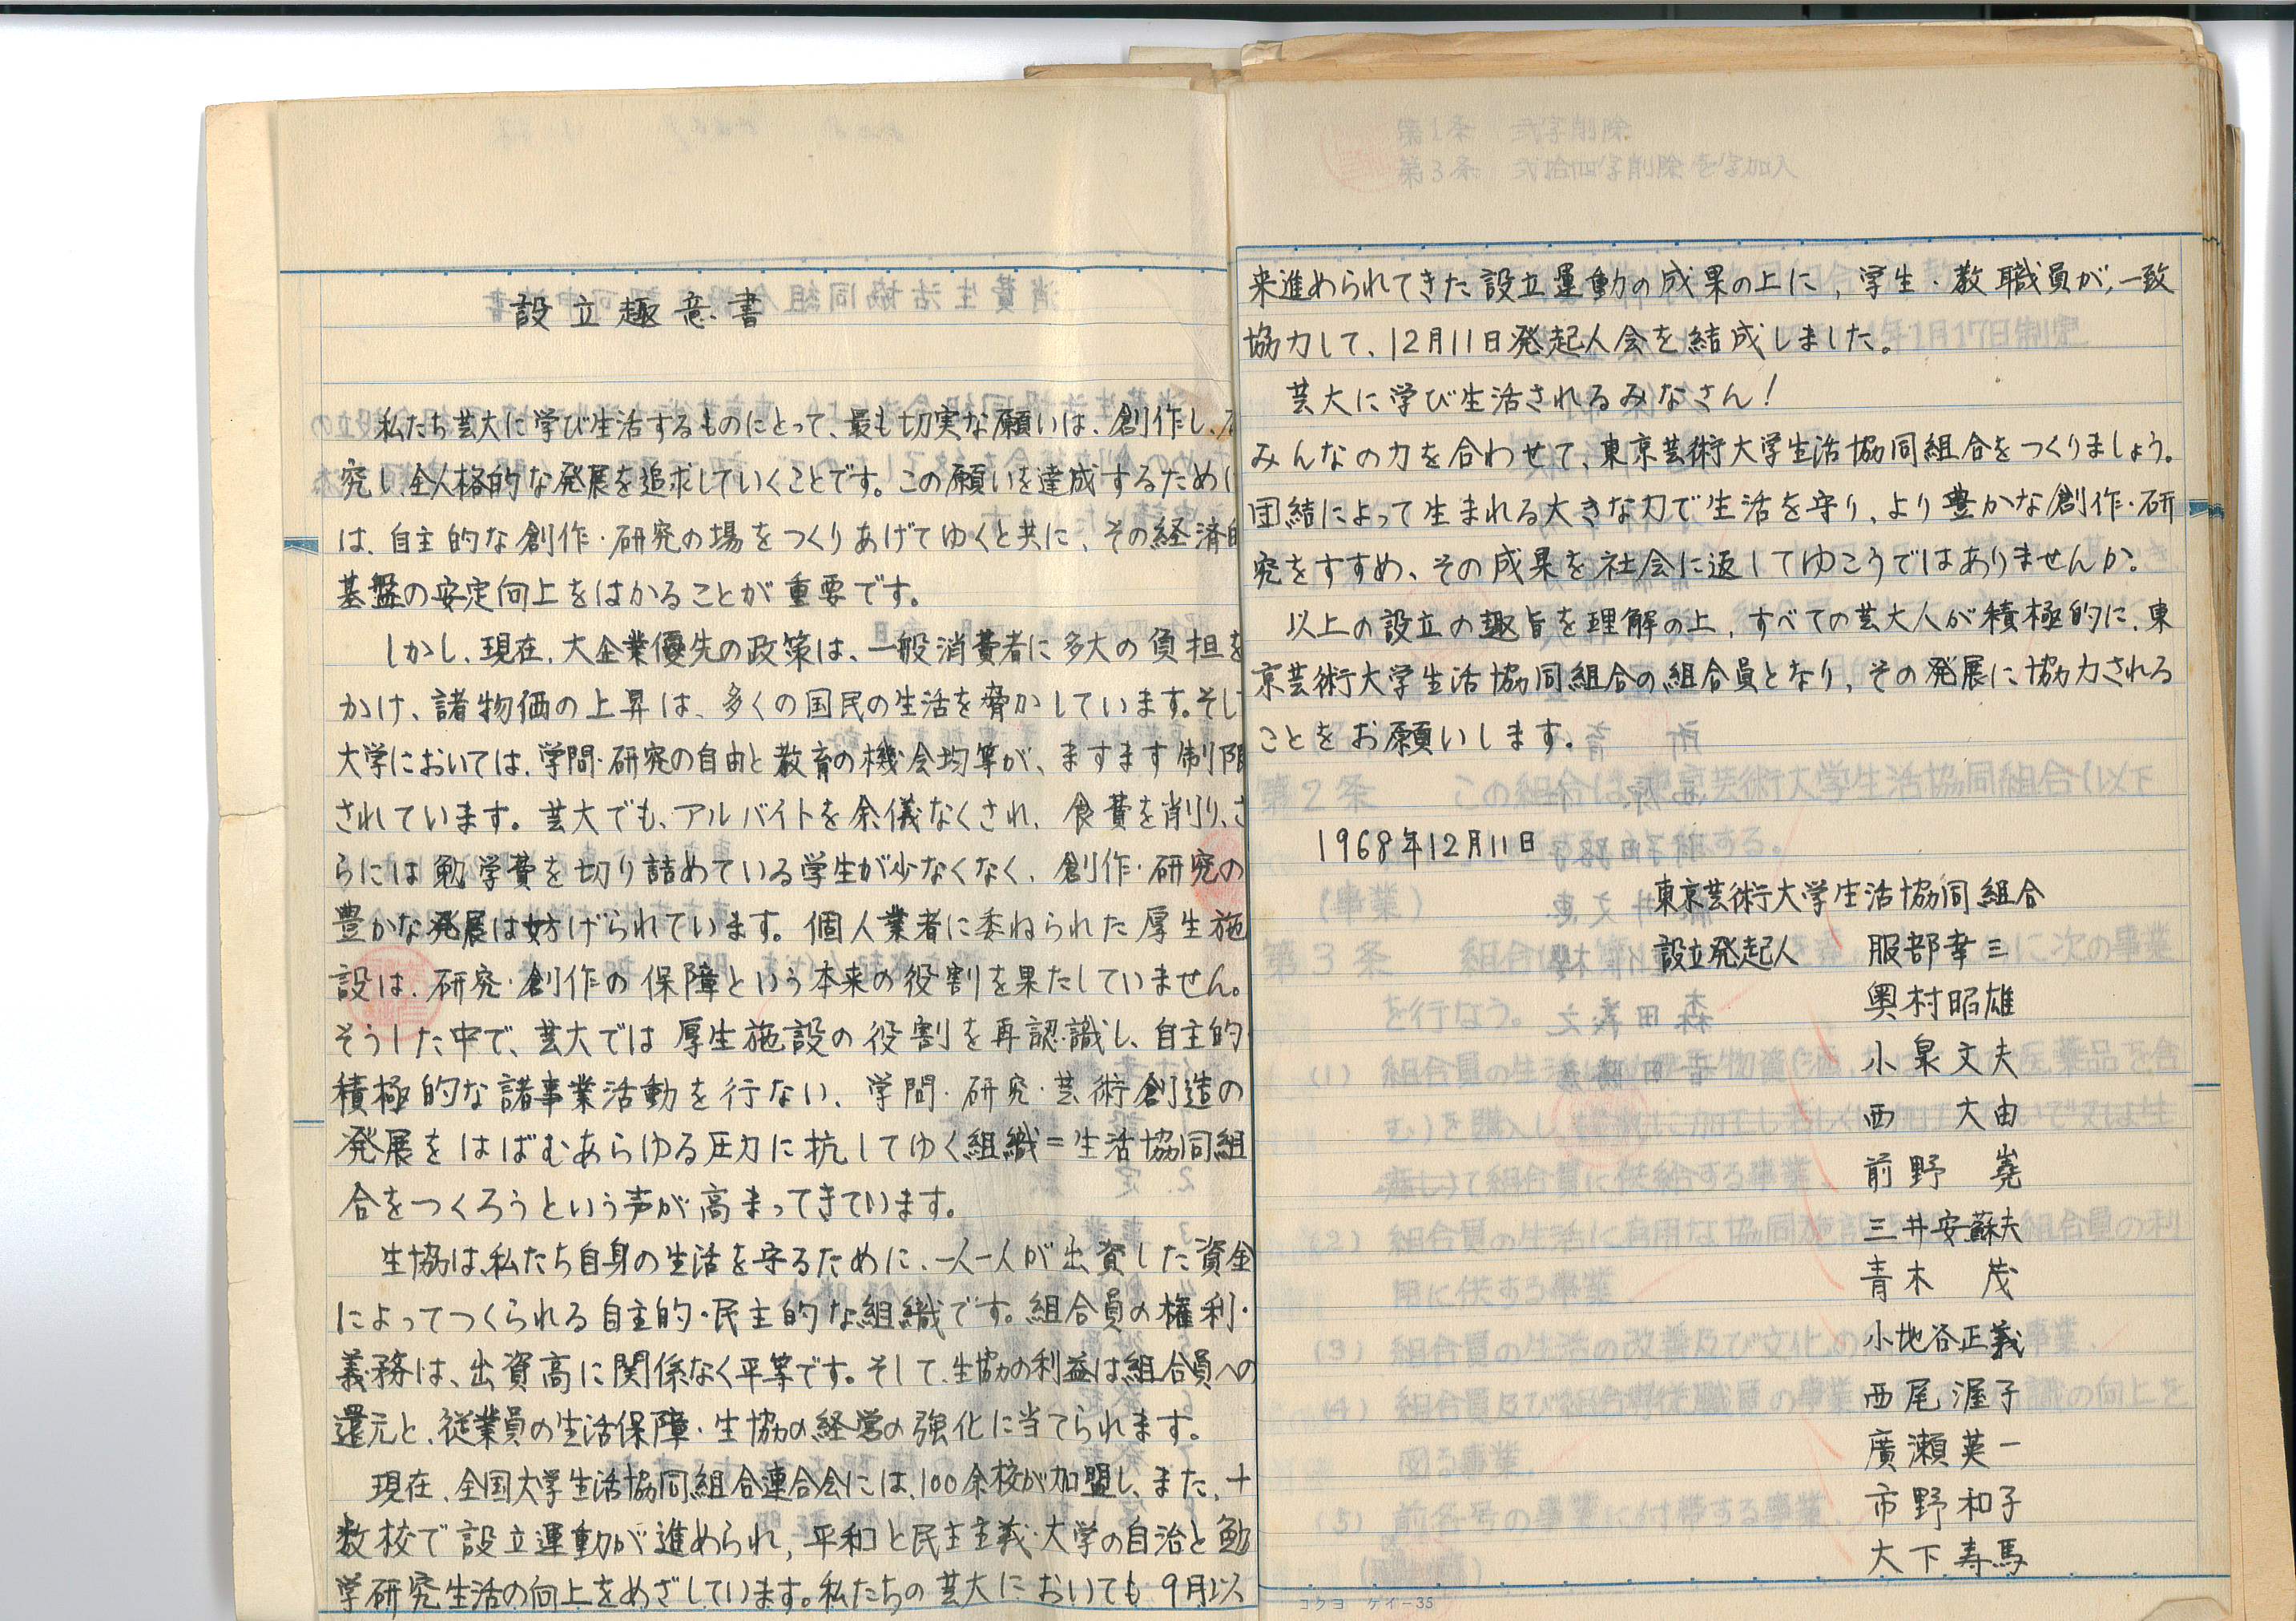 設立趣意書
私たち芸大に学び生活するものにとって、最も切実な願いは、創作し、
究し、全人格的な発展を追求していくことです。この願いを達成するために
は、自主的な創作・研究の場をつくりあげてゆくと共に、その経済的
基盤の安定向上をはかることが重要です。
しかし、現在、大企業優先の政策は、一般消費者に多大の負担を
かけ、諸物価の上昇は、多くの国民の生活を脅かしています。そして
大学においては、学問・研究の自由と教育の機会均等が、ますます制限
されています。芸大でも、アルバイトを余儀なくされ、食費を削り、さ
らには勉学費を切り詰めている学生が少なくなく、創作・研究の
豊かな発展は妨げられています。個人業者に委ねられた厚生施
設は、研究・創作の保障という本来の役割を果たしていません。
そうした中で、芸大では厚生施設の役割を再認識し、自主的・
積極的な諸事業活動を行ない、学問・研究・芸術創造の
発展をはばむあらゆる圧力に抗してゆく組織=生活協同組
合をつくろうという声が高まってきています。
生協は、私たち自身の生活を守るために、一人一人が出資した資金
によってつくられる自主的・民主的な組織です。組合員の権利・
義務は、出資高に関係なく平等です。そして、生協の利益は組合員への
還元と、従業員の生活保障・生協の経営の強化に当てられます。
現在、全国大学生活協同組合連合会には、100余校が加盟し、また、十
数校で設立運動が進められ、平和と民主主義・大学の自治と勉
学研究生活の向上をめざしています。私たちの芸大においても9月以
来進められてきた設立運動の成果の上に、学生・教職員が、一致
協力して、12月11日発起人会を結成しました。
芸大に学び生活されるみなさん!
みんなの力を合わせて、東京芸術大学生活協同組合をつくりましょう。
団結によって生まれる大きな力で生活を守り、より豊かな創作・研
究をすすめ、その成果を社会に返してゆこうではありませんか。
以上の設立の趣旨を理解の上、すべての芸大人が積極的に、東
京芸術大学生活協同組合の組合員となり、その発展に協力される
ことをお願いします。
1968年12月11日
東京芸術大学生活協同組合
設立発起人 服部幸三
奥村昭雄
小泉文夫
西 大由
前野 嶤
三井安蘇夫
青木 茂
小地谷正義
西尾渥子
廣瀬英一
市野和子
大下寿馬
コクヨ ケイ-35